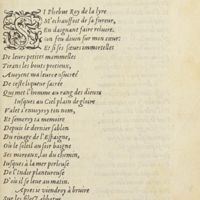 SI Phebus Roy de la lyre
M'eschauffoit de sa fureur,
En daignant faire reluire,
Son feu divin sur mon cœur:
Et si ses sœurs immortelles
De leurs petites mammelles
Tirans les bouts precieux,
Avoyent ma leure
De ceste liqueur sacrée
Qui met l'homme au rang des dieux:
Iusques au Ciel plain de gloire
Valet s'envoyroy ton nom,
Et semeroy ta memoire
Depuis le dernier sablon
Du rivage de l'Espaigne,
Où le soleil au soir baigne
Ses moreaux, las du chemin,
Iusques à la mer perleuse
De l'Inde plantureuse
D'où il se leue au matin.
Apres ie viendroy à bruire